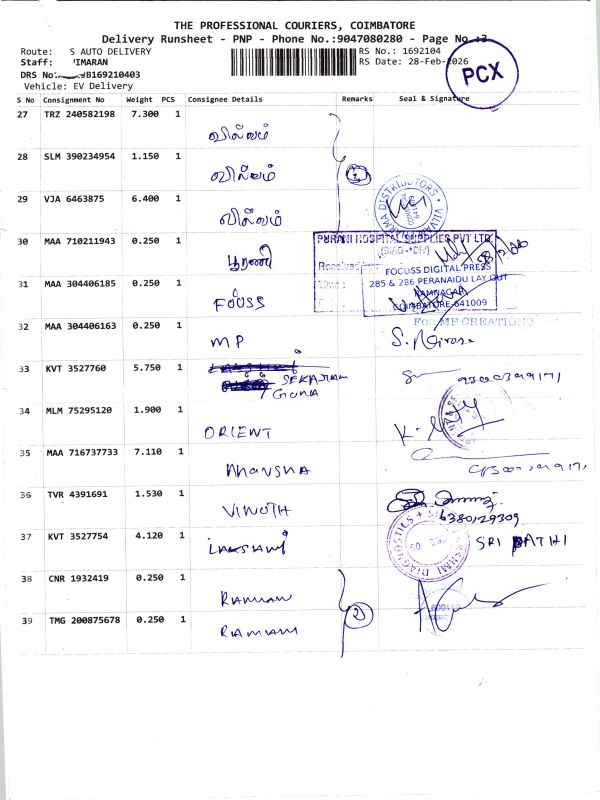 THE PROFESSIONAL COURIERS, COIMBATORE
Delivery Runsheet - PNP - Phone No.:9047080280 - Page No.:3
Route: S AUTO DELIVERY
RS No.: 1692104
Staff: MARAN
RS Date: 28-Feb-2026
DRS No: B169210403
Vehicle: EV Delivery
PCX
S No Consignment No Weight PCS Consignee Details Remarks Seal & Signature
27 TRZ 240582198 7.300 1
வில்வம்
28 SLM 390234954 1.150 1
வில்வம்
29 VJA 6463875 6.400 1
வில்வம்
30 MAA 710211943 0.250 1
பூரணி
PURANI HOSPITAL SUPPLIES PVT LTD
(DIAG-DIV)
Received
31 MAA 304406185 0.250 1
FOUSS
FOCUSS DIGITAL PRESS
285 & 286 PERANAIDU LAY OUT
RAMNAGAR
COIMBATORE-641009
32 MAA 304406163 0.250 1
MP
For MP CREATIONS
33 KVT 3527760 5.750 1
GUNA
34 MLM 75295120 1.900 1
ORIENT
35 MAA 716737733 7.110 1
36 TVR 4391691 1.530 1
VINOTH
6380129309
37 KVT 3527754 4.120 1
LAKSHMI
SRI PATHI
38 CNR 1932419 0.250 1
39 TMG 200875678 0.250 1
2